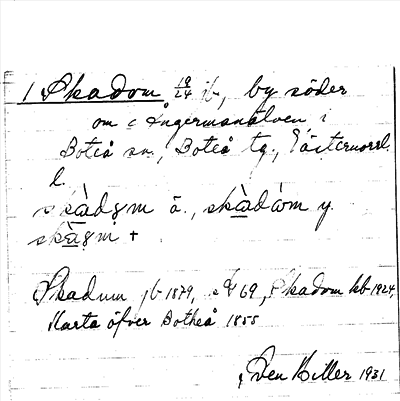 1 Skadom, 19/24 jb, by söder
om Ångermanälven i
Boteå sn., Boteå tg., Västernorrl.
l.
skàdǫm ä., skàdàm y.
skàgm +
Skadum jb 1879, 69, Skadom kb 1924,
Karta öfver Botheå 1855
Sven Hiller 1931